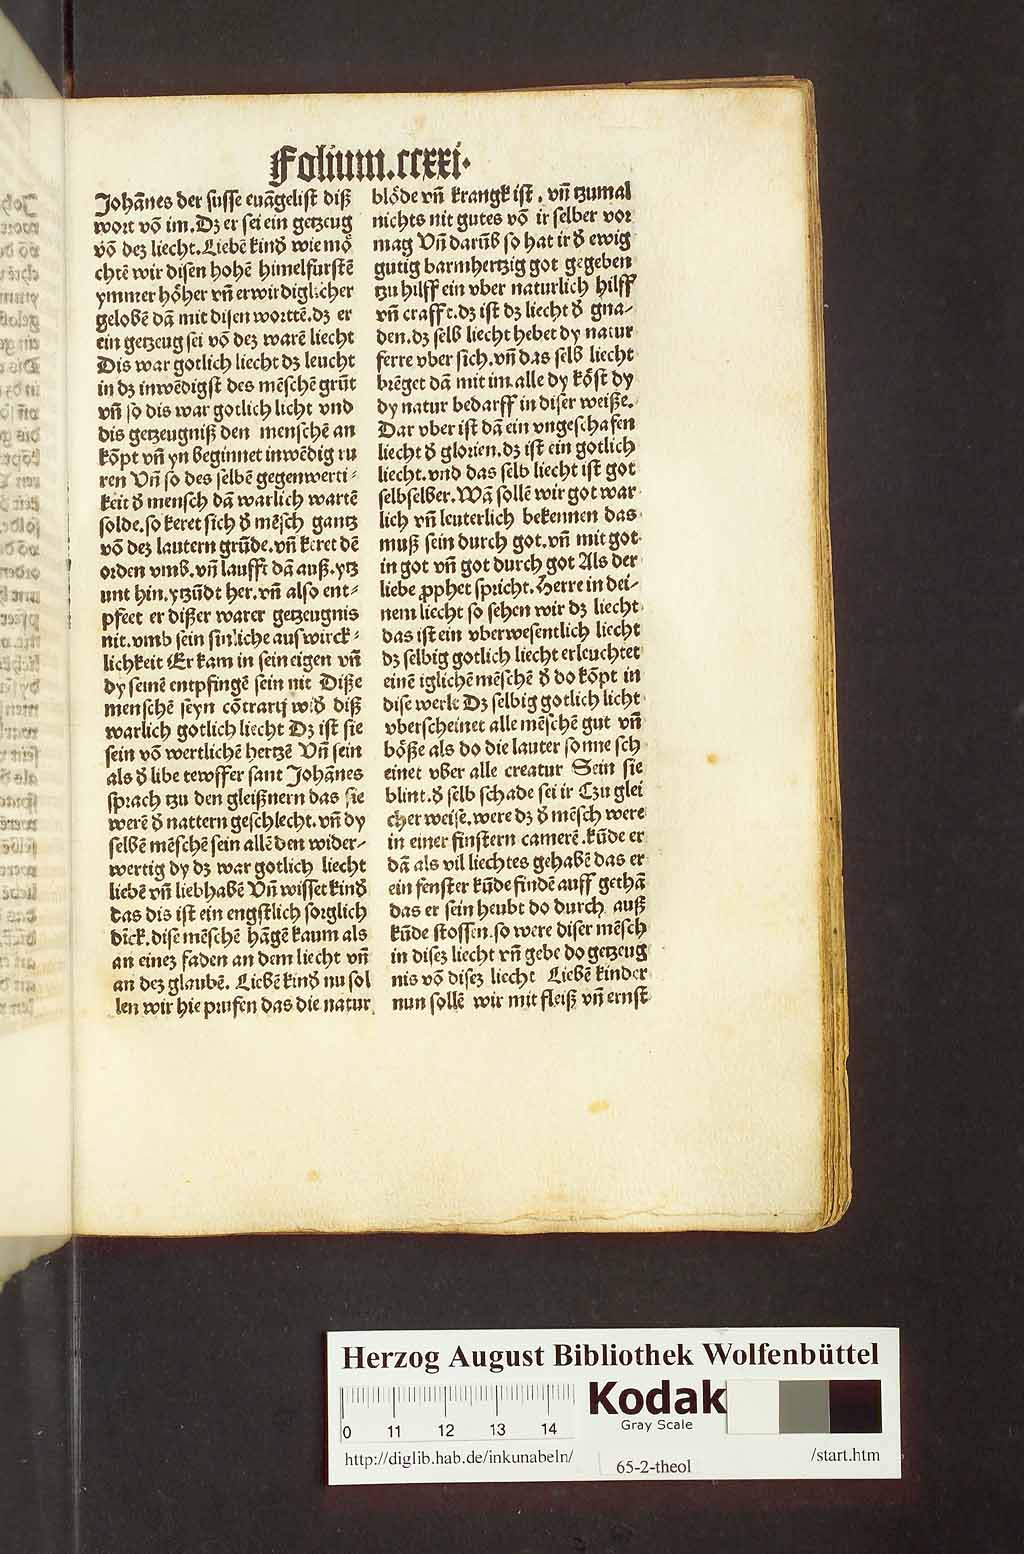 Folium.ccxxi.
Johañes der susse euãgelist diß
wort võ im. Dz er sei ein getzeug
võ dez liecht. Liebẽ kinđ wie mö
chtẽ wir disen hohẽ himelfurstẽ
ymmer höher vñ erwirdiglicher
gelobẽ dã mit disen worttẽ. dz er
ein getzeug sei võ dez warẽ liecht
Dis war gotlich liecht dz leucht
in dz inwẽdigst des mẽschẽ grũt
vñ so dis war gotlich licht vnd
dis getzeugniß den menschẽ an
kõpt vñ yn beginnet inwẽdig ru
ren Vñ so des selbẽ gegenwerti⸗
keit đ mensch dã warlich wartẽ
solde. so keret sich đ mẽsch gantz
võ dez lautern grũde. vñ keret dẽ
orden vmb. vñ laufft dã auß. ytz
unt hin. ytzũdt her. vñ also ent⸗
pfeet er dißer warer getzeugnis
nit. vmb sein sinliche auswirck⸗
lichkeit Er kam in sein eigen vñ
dy seinẽ entpfingẽ sein nit Diße
menschẽ seyn cõtrarij wiđ diß
warlich gotlich liecht Dz ist sie
sein võ wertlichẽ hertzẽ Vñ sein
als đ libe tewffer sant Johãnes
sprach tzu den gleißnern das sie
werẽ đ nattern geschlecht. vñ dy
selbẽ mẽschẽ sein allẽ den wider⸗
wertig dy dz war gotlich liecht
liebẽ vñ liebhabẽ Vñ wisset kinđ
das dis ist ein engstlich sorglich
dĩck. dise mẽschẽ hãgẽ kaum als
an einez faden an dem liecht vñ
an dez glaubẽ. Liebẽ kinđ nu sol
len wir hie prufen das die natur
blöde vñ krangk ist. vñ tzumal
nichts nit gutes võ ir selber vor
mag Vñ darũb so hat ir đ ewig
gutig barmhertzig got gegeben
tzu hilff ein vber naturlich hilff
vñ crafft. dz ist dz liecht đ gna⸗
den. dz selb liecht hebet dy natur
ferre vber sich. vñ das selb liecht
brẽget dã mit im. alle dy köst dy
dy natur bedarff in diser weiße.
Dar vber ist dã ein vngeschafen
liecht đ glorien. dz ist ein gotlich
liecht. vnd das selb liecht ist got
selbselber. Wã sollẽ wir got war
lich vñ leuterlich bekennen das
muß sein durch got. vñ mit got
in got vñ got durch got Als der
liebe ꝓphet spricht. Herre in dei⸗
nem liecht so sehen wir dz liecht
das ist ein vberwesentlich liecht
dz selbig gotlich liecht erleuchtet
einẽ iglichẽ mẽschẽ đ do kõpt in
dise werlt Dz selbig gotlich licht
vberscheinet alle mẽschẽ gut vñ
böße als do die lauter sonne sch
einet vber alle creatur Sein sie
blint. đ selb schade sei ir Czu glei
cher weise. were dz đ mẽsch were
in einer finstern camerẽ. kũde er
dã als vil liechtes gehabẽ das er
ein fenster kũde findẽ auff gethã
das er sein heubt do durch auß
kũde stossen. so were diser mẽsch
in disez liecht vñ gebe do getzeug
nis võ disez liecht Liebẽ kinder
nun sollẽ wir mit fleiß vñ ernst
Herzog August Bibliothek Wolfenbüttel
Kodak
Gray Scale
0 11 12 13 14
http://diglib.hab.de/inkunabeln/
65-2-theol
/start.htm